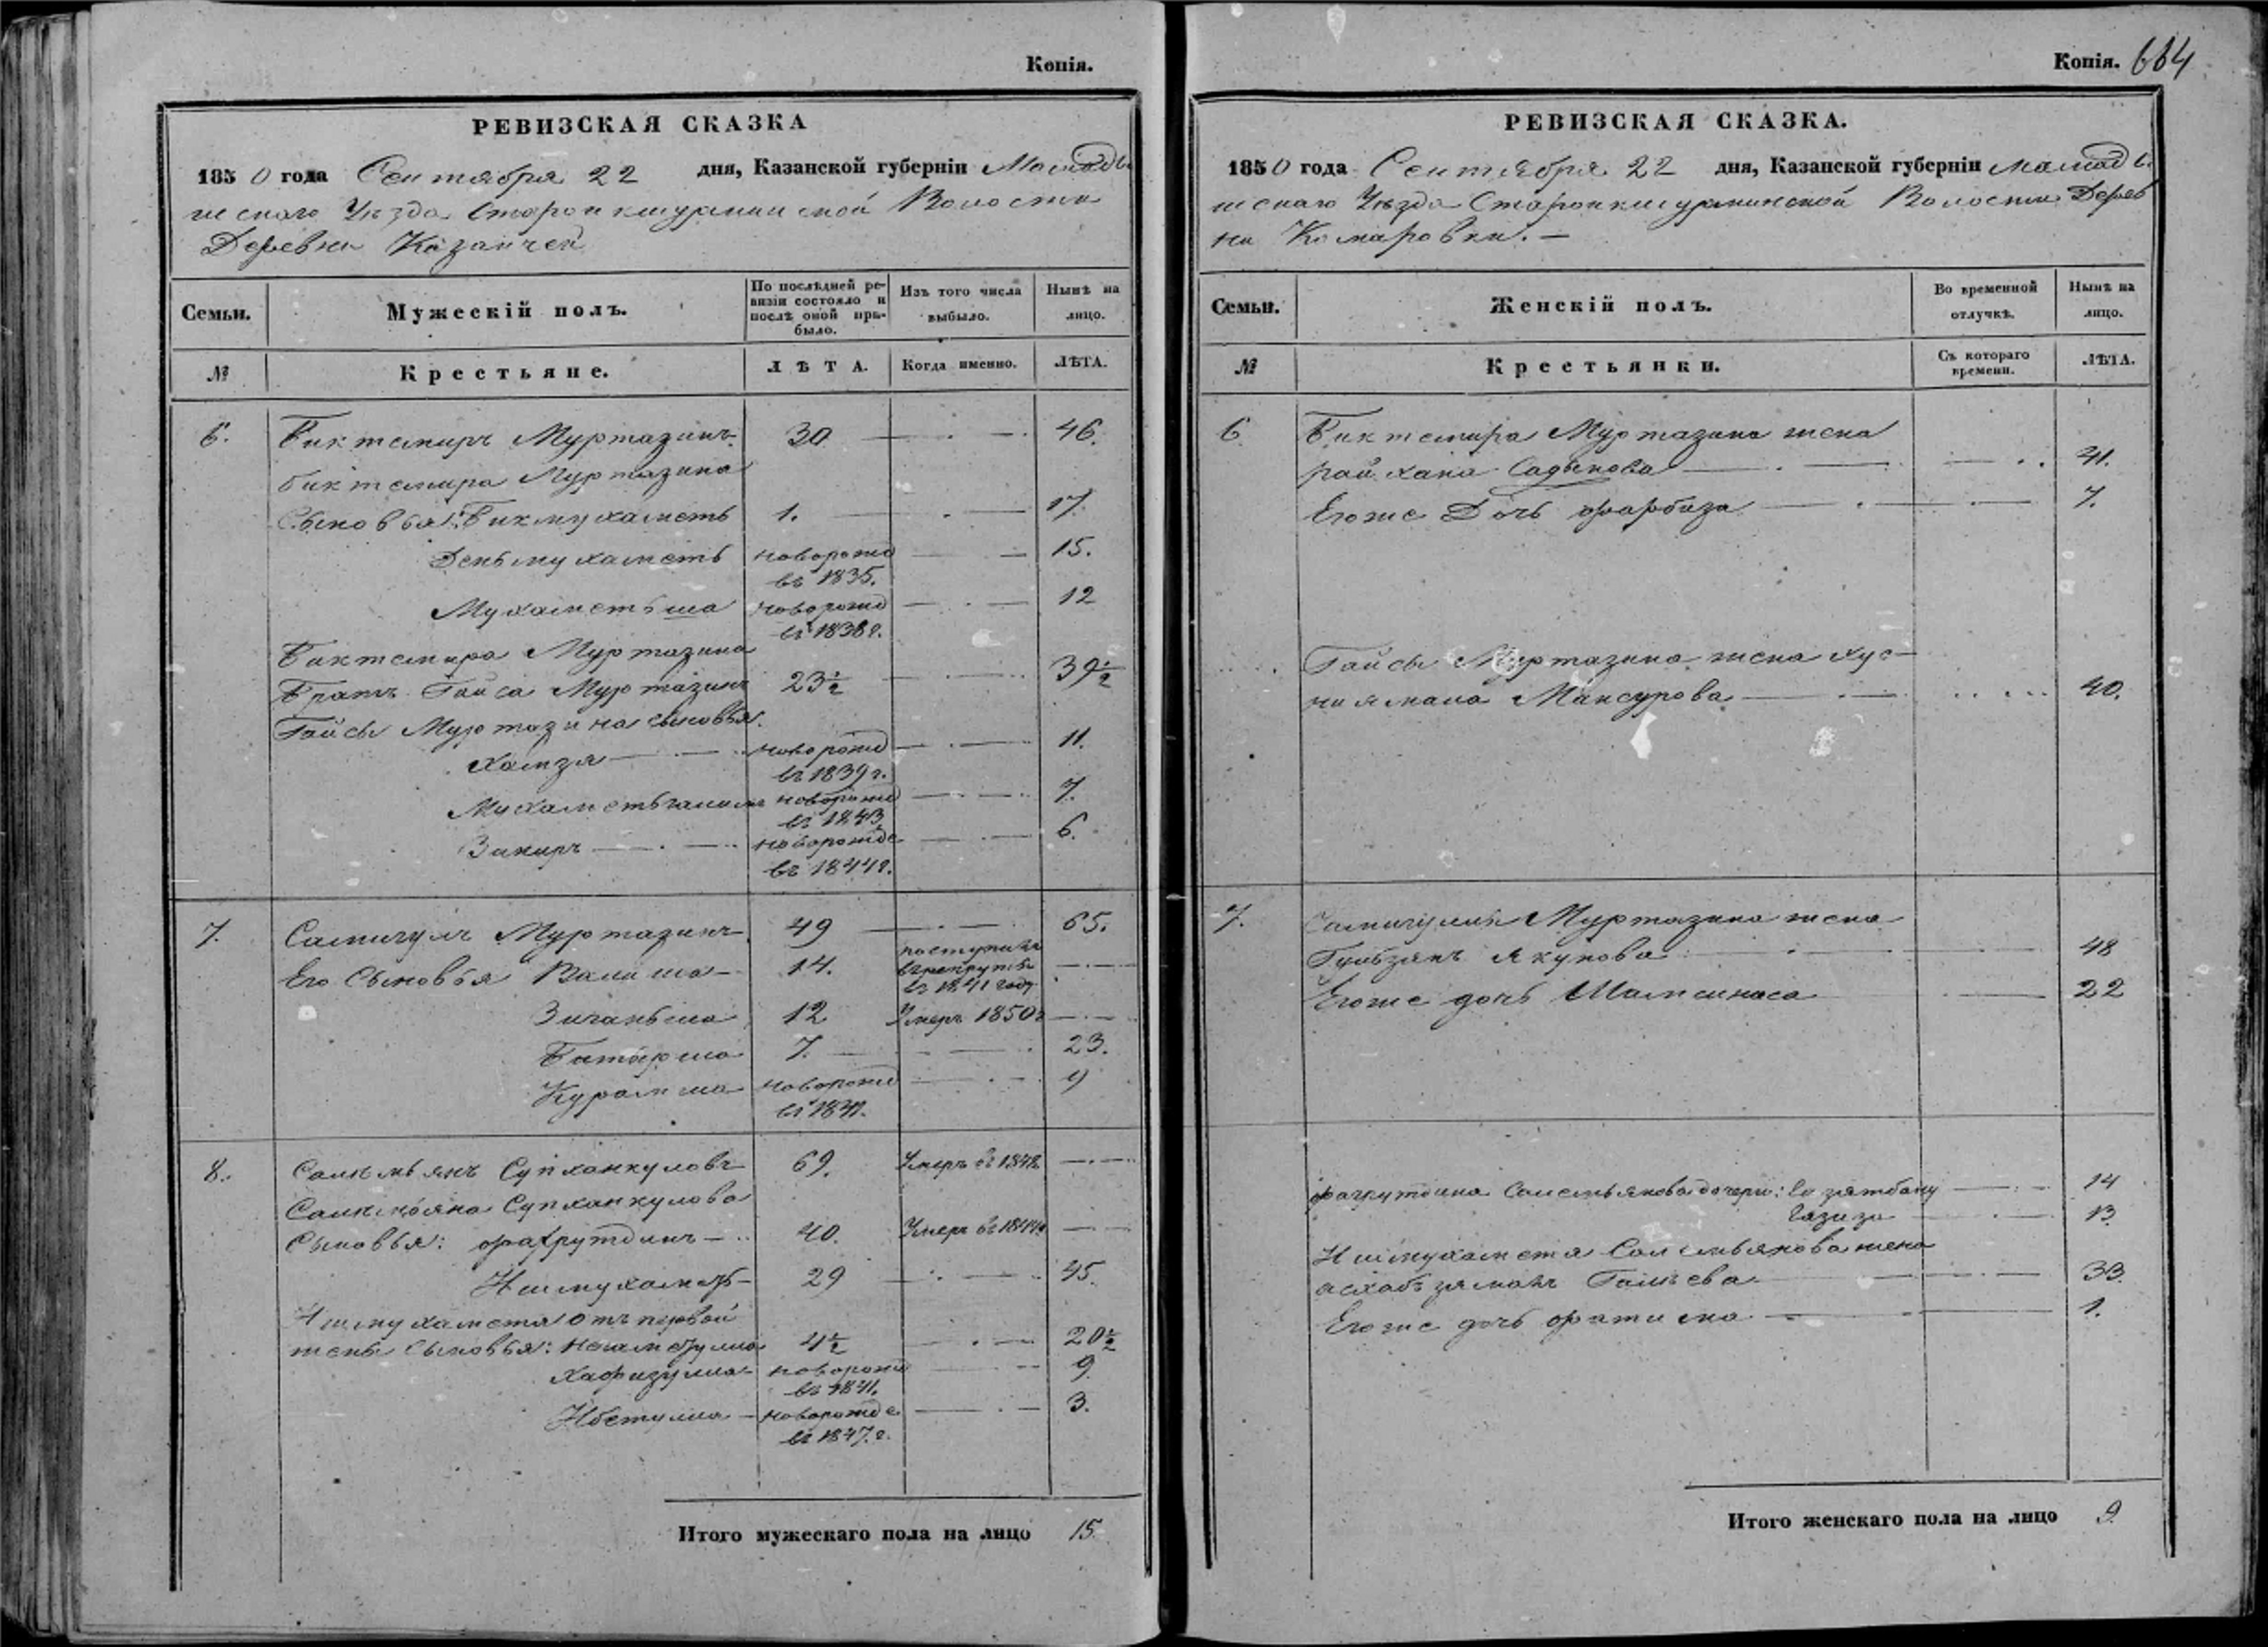 Копія.
РЕВИЗСКАЯ СКАЗКА
1850 года Сентября 22 дня, Казанской губерніи Мамады
шскаго Уѣзда Волости
Деревни
Семьи.
Мужескій полъ.
По послѣдней ре-
визіи состояло и
послѣ оной при-
было.
Изъ того числа
выбыло.
Нынѣ на
лицо.
№
Крестьяне.
ЛѢТА.
Когда именно.
ЛѢТА.
6. Биктемиръ Муртазинъ 30 46.
биктемира Муртазина
Сыновья: Бикмухаметь 1. 17.
Деньмухаметь новорожд 15.
въ 1835.
Мухаметьша новорожд 12
въ 1838 г.
Биктемира Муртазина
Братъ Гайса Муртазинъ 23½ 39½
Гайсы Муртазина сыновья
Хамзя новорожд 11.
въ 1839 г.
новорожд 7.
въ 1843
Закиръ новорожде 6.
въ 1844 г.
7. Самигулъ Муртазинъ 49 65.
Его Сыновья Валиша 14. поступилъ
въ рекруты
въ 1841 году
Зиганьша 12 Умеръ 1850 г
Батырша 7. 23.
Курамша новорожд 9
8. Салемьянъ Супханкуловъ 69. Умеръ въ 1848
Салемьяна Супханкулова
Сыновья: Фахрутдинъ 40. Умеръ въ
Ишмухаметь 29 45.
Ишмухаметя отъ первой
жены Сыновья: 4½ 20½
Хафизулла новорожд 9.
въ 1841.
новорожде 3.
въ 1847 г.
Итого мужескаго пола на лицо 15.
Копія. 664
РЕВИЗСКАЯ СКАЗКА.
1850 года Сентября 22 дня, Казанской губерніи Мамады
шскаго Уѣзда Волости Дерев
ни Комаровки.
Семьи.
Женскій полъ.
Во временной
отлучкѣ.
Нынѣ на
лицо.
№
Крестьянки.
Съ котораго
времени.
ЛѢТА.
6 Биктемира Муртазина жена
райхана Садыкова 41.
Егоже Дочь фарбиза 7.
Гайсы Муртазина жена хус-
ниямала Мансурова 40.
7. Самигуллы Муртазина жена
Гульзянъ Якупова 48
Егоже дочь Шамсиниса 22
фахрутдина Салемьянова дочери: 14
Газиза 13.
Ишмухаметя Салемьянова жена
Галиева 33.
Егоже дочь фатима 1.
Итого женскаго пола на лицо 9.